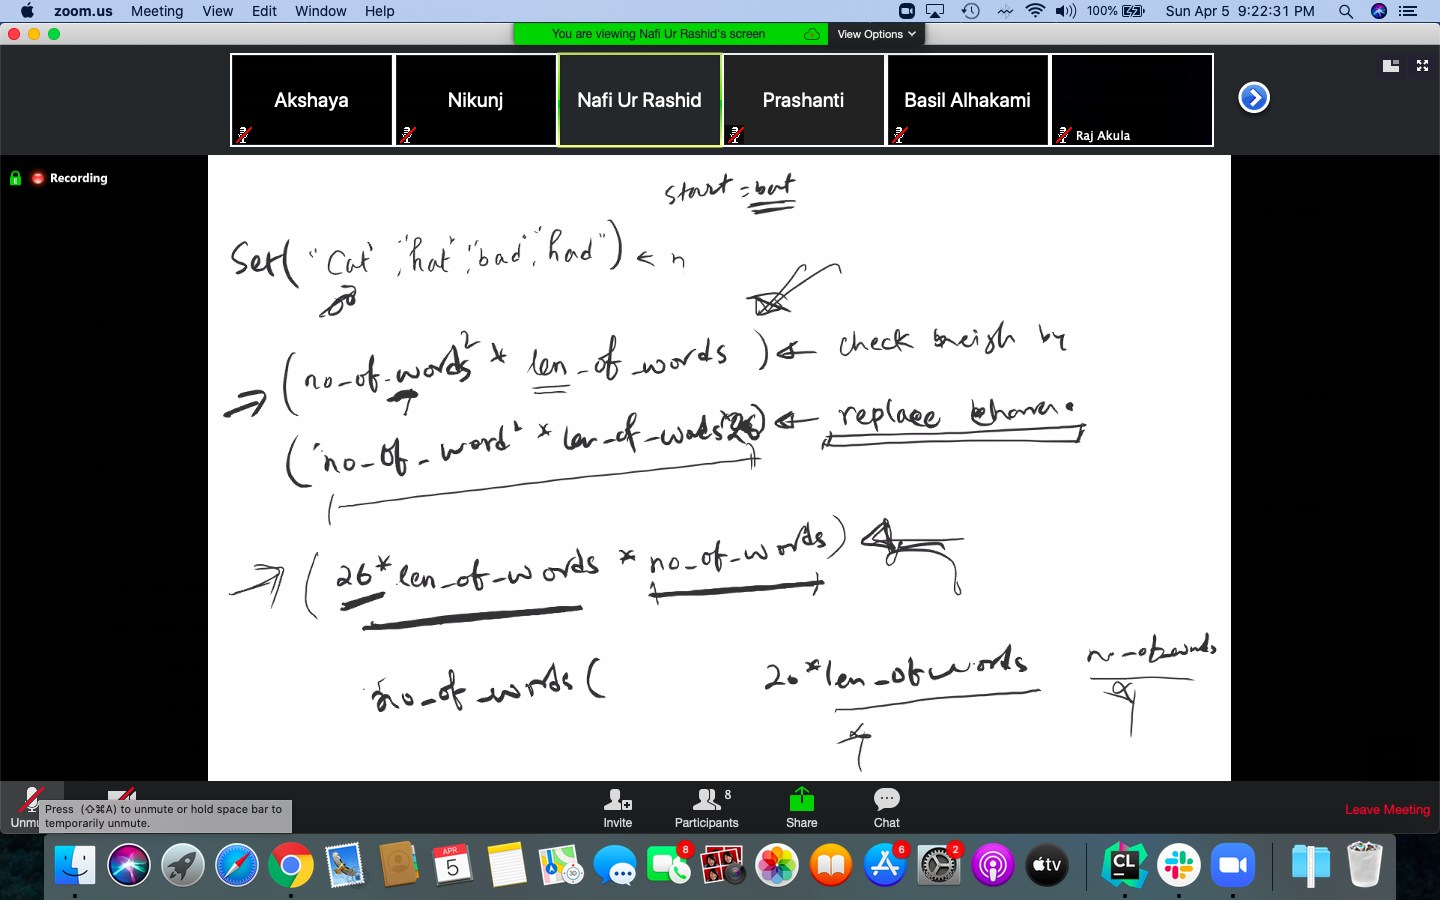 zoom.us Meeting View Edit Window Help 100% Sun Apr 5 9:22:31 PM
You are viewing Nafi Ur Rashid's screen View Options
Akshaya Nikunj Nafi Ur Rashid Prashanti Basil Alhakami Raj Akula
Recording
start = bat
Set( "Cat", "hat", "bad", "had" ) ← n
(no_of_words² * len_of_words) ← check neigh by
(no_of_word² * len_of_words*26) ← replace
(26*len_of_words * no_of_words)
no_of_words( 26*len_of words no_of words
Unmu
Press (⇧⌘A) to unmute or hold space bar to
temporarily unmute.
Invite Participants 8 Share Chat Leave Meeting
8 APR 5 3D 6 2 tv CL